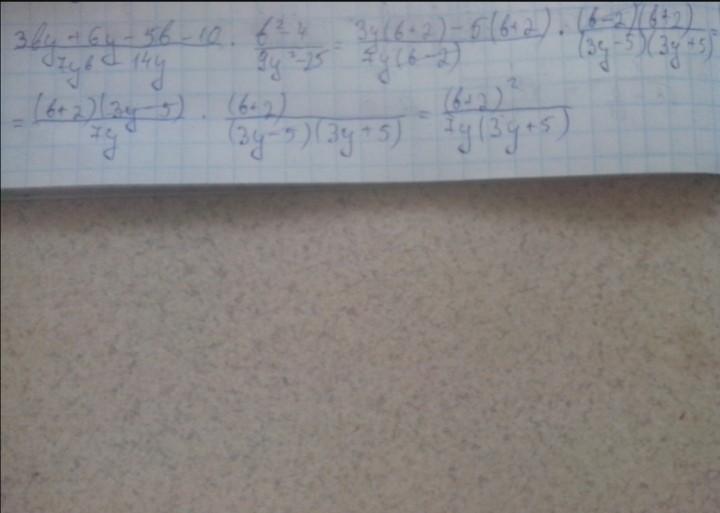 (3by + 6y - 5b - 10)/(7yb - 14y) · (b² - 4)/(9y² - 25) = (3y(b+2) - 5(b+2))/(7y(b-2)) · ((b-2)(b+2))/((3y-5)(3y+5)) =
= ((b+2)(3y-5))/(7y) · (b+2)/((3y-5)(3y+5)) = (b+2)²/(7y(3y+5))